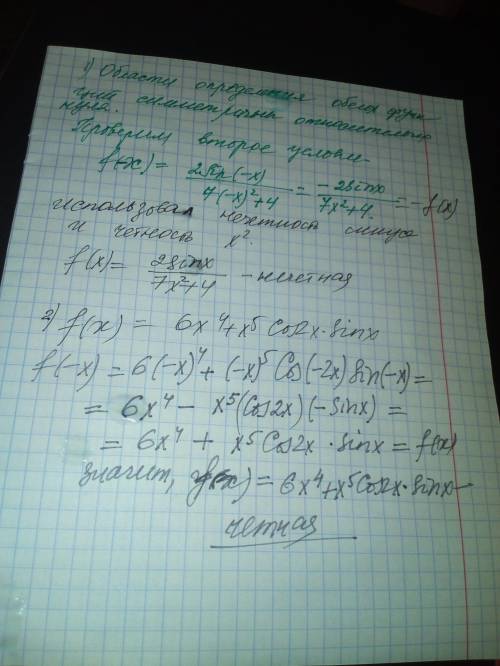 1) Области определения обеих функ-
ций симметричны относительно
нуля.
Проверим второе условие
f(-x) = 2sin(-x)/7(-x)²+4 = -2sinx/7x²+4 = -f(x)
использовал нечетность синуса
и четность x².
f(x) = 2sinx/7x²+4 - нечетная
2) f(x) = 6x⁴+x⁵cos2x·sinx
f(-x) = 6(-x)⁴+(-x)⁵cos(-2x)sin(-x) =
= 6x⁴ - x⁵(cos2x)(-sinx) =
= 6x⁴ + x⁵cos2x·sinx = f(x)
значит, f(x) = 6x⁴+x⁵cos2x·sinx -
четная